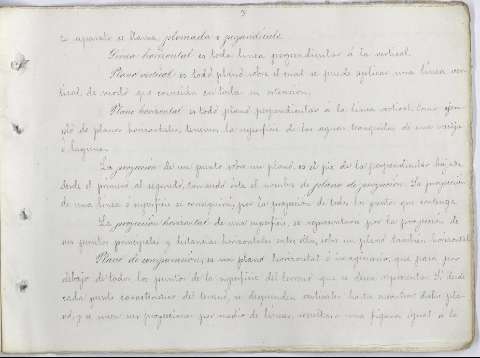 3
aparato se llama plomada o
Línea horizontal es toda línea perpendicular á la vertical.
Plano vertical es todo plano sobre el cual se puede aplicar una línea ver-
tical, de modo que coincida en toda su extension.
Plano horizontal es todo plano perpendicular á la línea vertical. Como ejem-
plo de planos horizontales, tenemos la superficie de las aguas tranquilas de una vasija
ó laguna.
La proyeccion de un punto sobre un plano es el pie de la perpendicular bajada
desde el primero al segundo, tomando este el nombre de plano de proyeccion. La proyeccion
de una línea ó superficie se conseguirá, por la proyeccion de todos los puntos que contenga.
La proyeccion horizontal de una superficie, se representará por la proyeccion de
sus puntos principales y distancias horizontales entre ellos, sobre un plano tambien horizontal.
Plano de comparacion, es un plano horizontal ó imaginario, que pasa por
debajo de todos los puntos de la superficie del terreno que se desea representar. Si desde
cada punto característico del terreno, se descuelgan verticales hasta encontrar dicho pla-
no, y se unen sus proyecciones por medio de líneas, resultará una figura igual á la